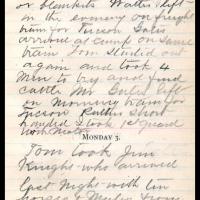 or blankets Walter left
in the evening on freight
train for Tucson Gates
arrived at camp on same
train Tom started out
again and took 4
men to try and find
cattle Mr Gates left
on morning train for
Tucson Rather short
handed I took 1st guard
MONDAY 3.
Tom took Jim
Knight who arrived
last night with ten
horses &